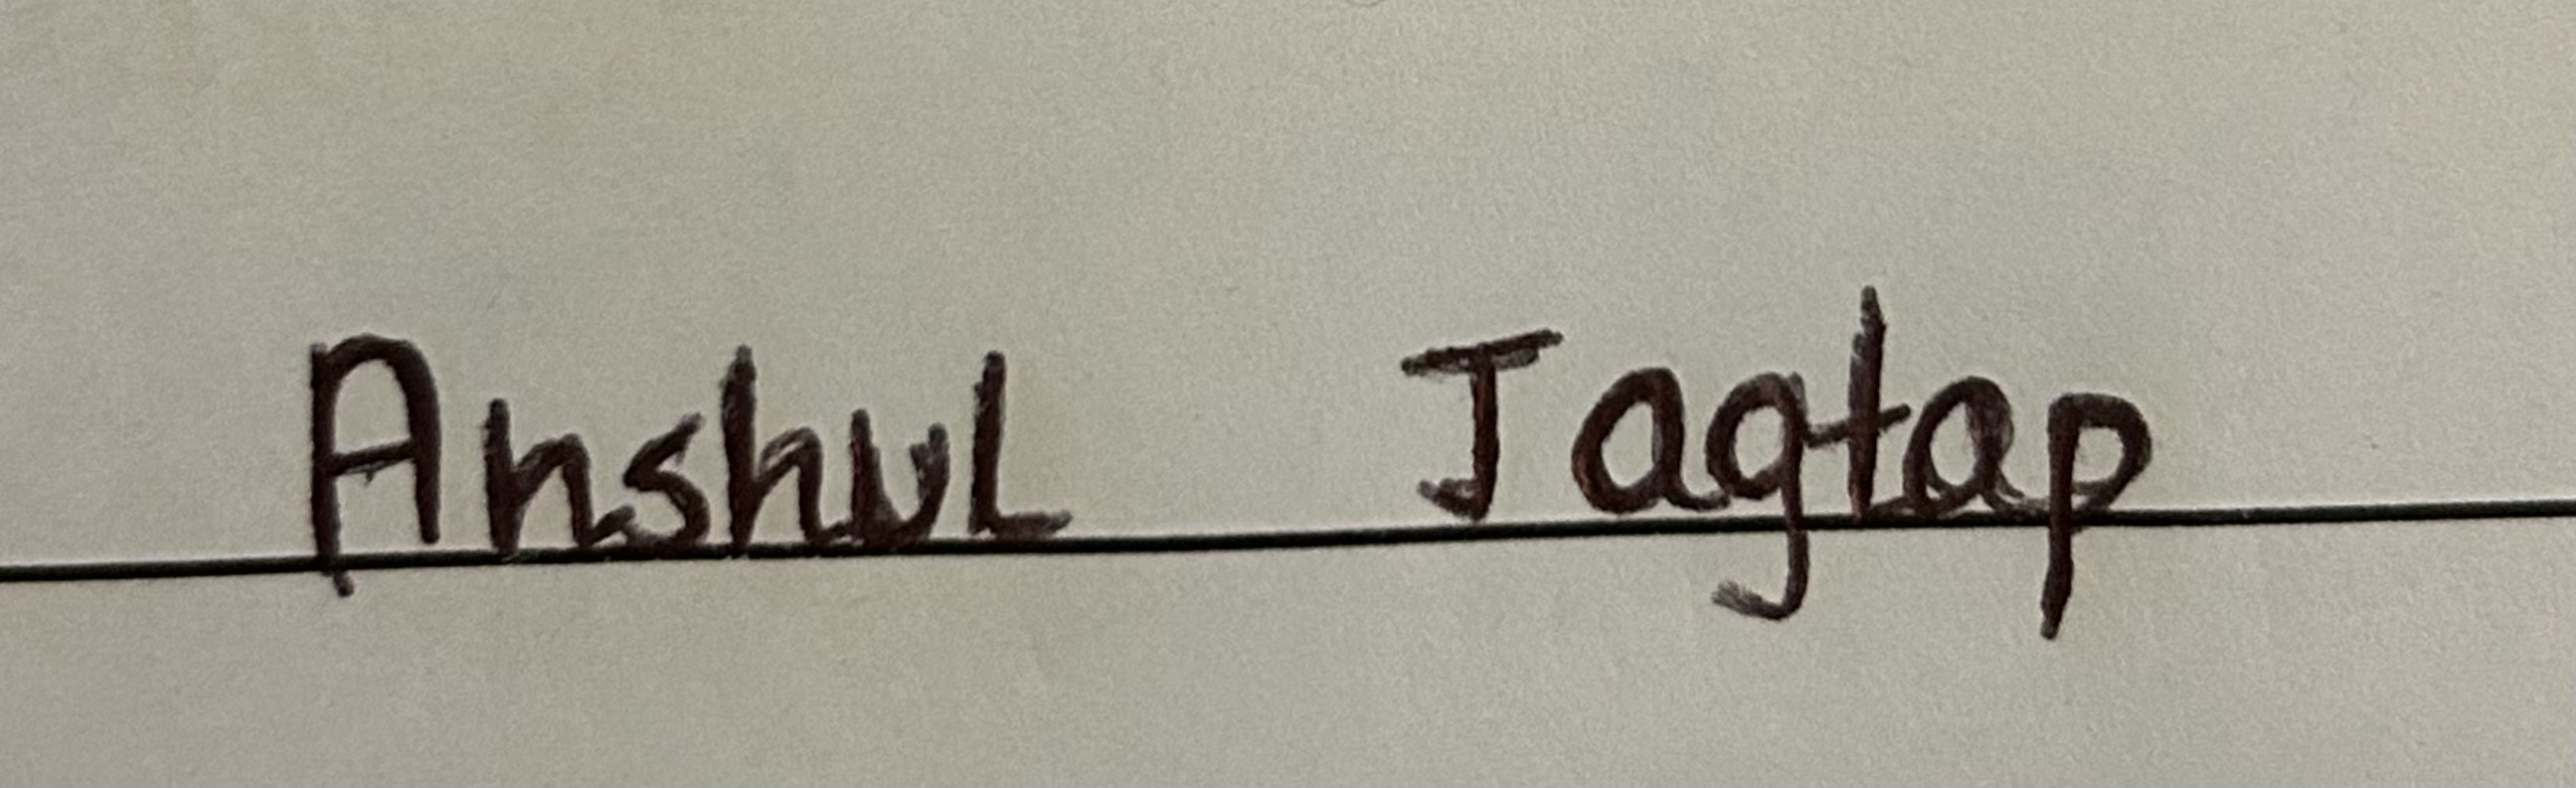 Anshul Jagtap